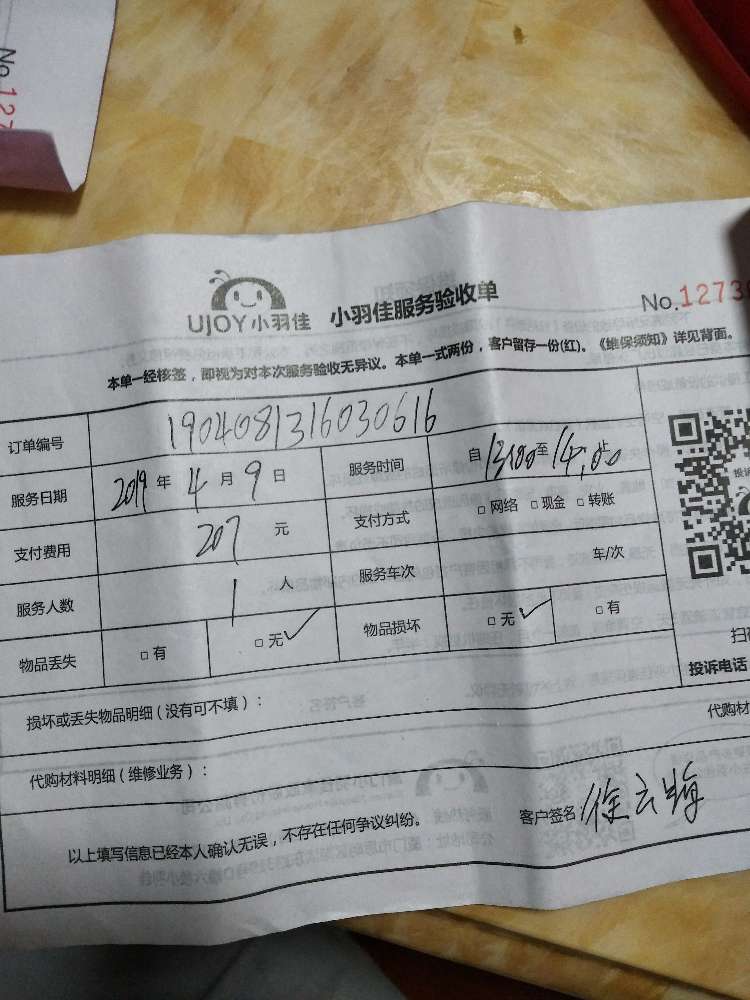 No.127
UJOY小羽佳 小羽佳服务验收单
No.1273
本单一经核签，即视为对本次服务验收无异议。本单一式两份，客户留存一份(红)。《维保须知》详见背面。
订单编号 1904081316030616
服务日期 2019 年 4 月 9 日 服务时间 自 13:00 至 14:00 止
支付费用 207 元 支付方式 □ 网络 □ 现金 □ 转账
服务人数 1 人 服务车次 车/次
物品丢失 □ 有 □ 无 ✓ 物品损坏 □ 无 ✓ □ 有
投诉电话
损坏或丢失物品明细（没有可不填）：
代购材
代购材料明细（维修业务）：
以上填写信息已经本人确认无误，不存在任何争议纠纷。 客户签名 徐云